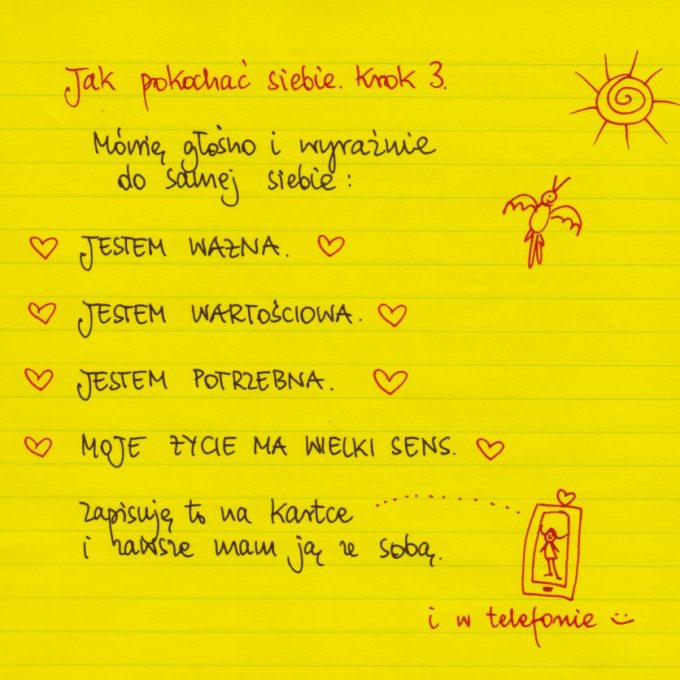 Jak pokochać siebie. Krok 3.
Mówię głośno i wyraźnie
do samej siebie:
JESTEM WAŻNA.
JESTEM WARTOŚCIOWA.
JESTEM POTRZEBNA.
MOJE ŻYCIE MA WIELKI SENS.
zapisuję to na kartce
i zawsze mam ją ze sobą.
i w telefonie